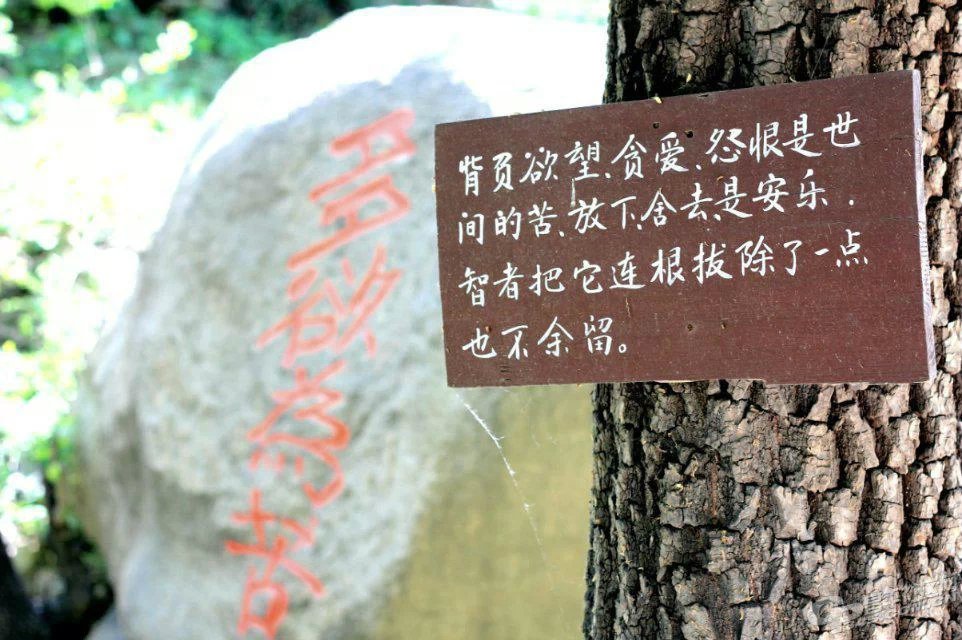 背负欲望、贪爱、怨恨是世
间的苦、放下、舍去、是安乐.
智者把它连根拔除了一点
也不余留。
多欲为苦